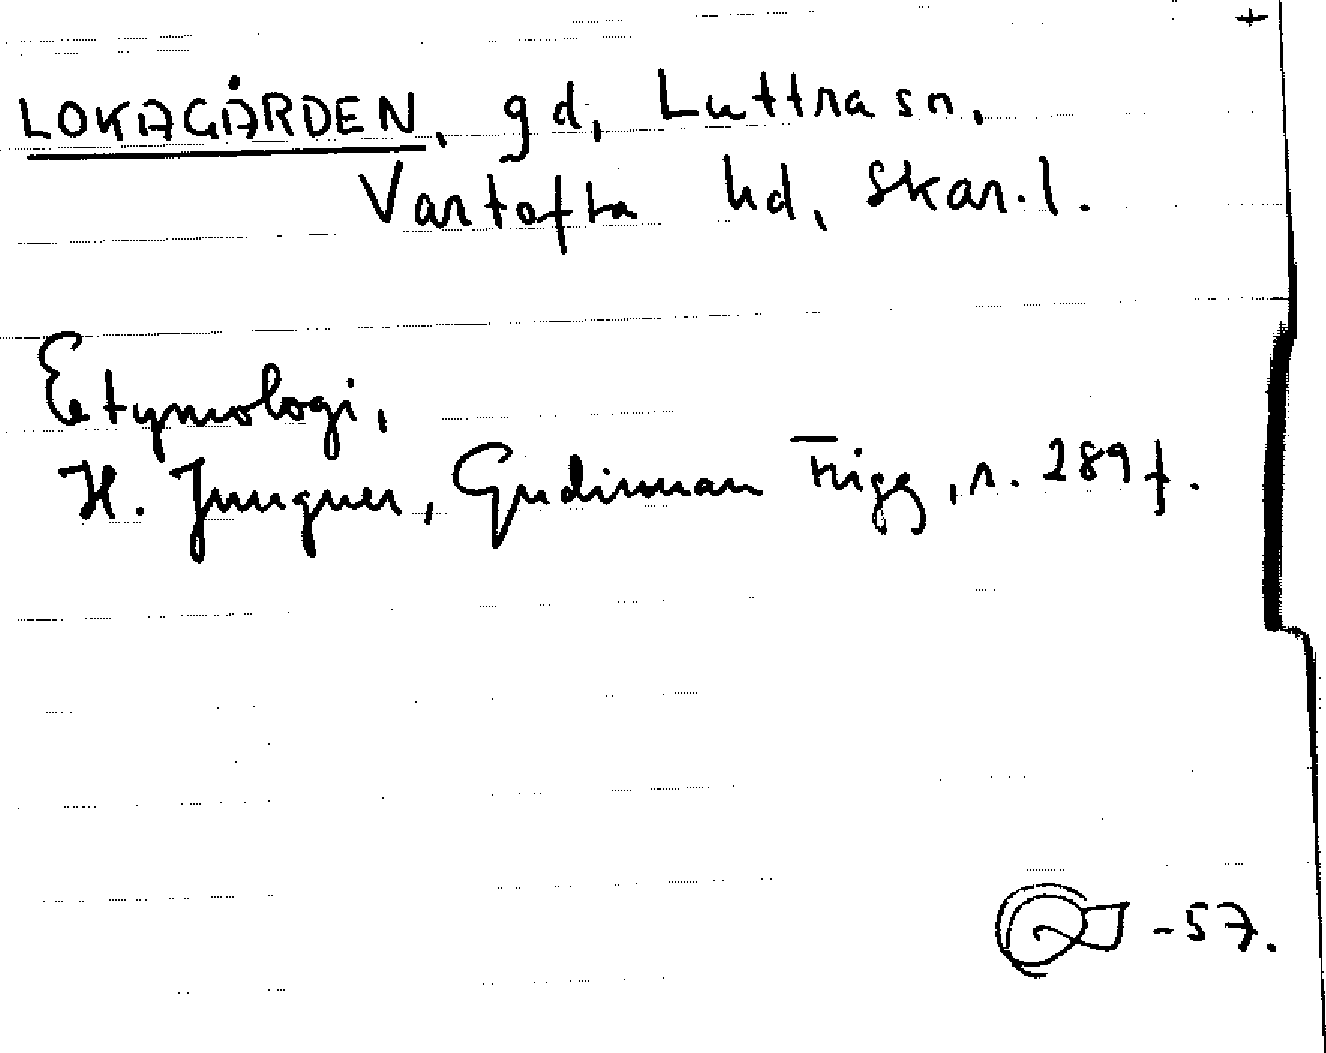 +
LOKAGÅRDEN, gd, Luttra sn,
Vartofta hd, Skar.l.
Etymologi,
H. Jungner, Gudinnan Frigg, s. 289 f.
-57.